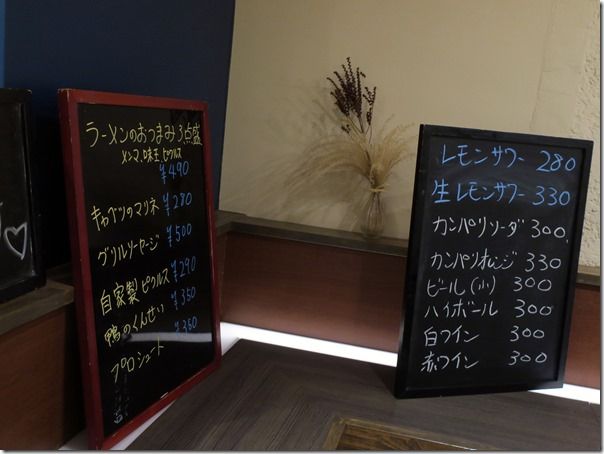 ラーメンのおつまみ3点盛
メンマ、味玉 ピクルス
¥490
キャベツのマリネ ¥280
グリルソーセージ ¥500
自家製ピクルス ¥290
鴨のくんせい ¥350
プロシュート ¥350
レモンサワー 280
生レモンサワー 330
カンパリソーダ 300
カンパリオレンジ 330
ビール(小) 300
ハイボール 300
白ワイン 300
赤ワイン 300